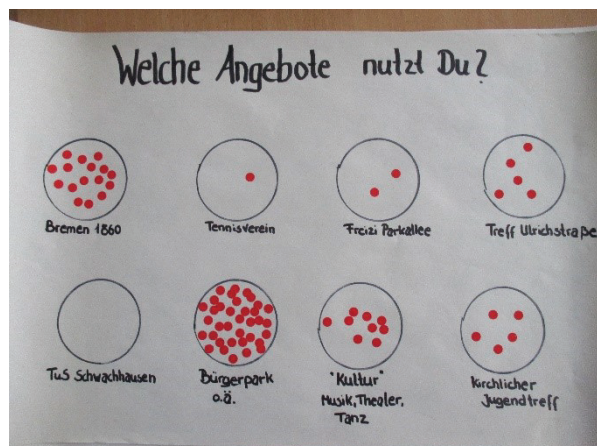 Welche Angebote nutzt Du?
Bremen 1860
Tennisverein
Freizi Parkallee
Treff Ulrichstraße
TuS Schwachhausen
Bürgerpark
o.ä.
"Kultur"
Musik, Theater,
Tanz
Kirchlicher
Jugendtreff